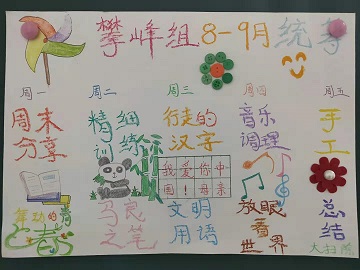 攀峰组8-9月统导
周一
周末
分享
舞动的
青春
周二
精细
训练
马良
之笔
周三
行走的
汉字
我爱你中
国！母亲
文明
用语
周四
音乐
调理
放眼
看
世界
周五
手
工
总
结
大扫除